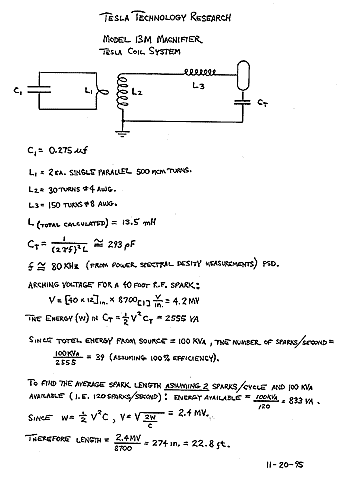 TESLA TECHNOLOGY RESEARCH
MODEL 13M MAGNIFIER
TESLA COIL SYSTEM
L3
C1 L1 L2 CT
C1 = 0.275 µf
L1 = 2 EA. SINGLE PARALLEL 500 MCM TURNS.
L2 = 30 TURNS #4 AWG.
L3 = 150 TURNS #8 AWG.
L (TOTAL CALCULATED) = 13.5 mH
CT = 1/(2πf)²L ≅ 293 pF
f ≅ 80 KHz (FROM POWER SPECTRAL DESITY MEASUREMENTS) PSD.
ARCHING VOLTAGE FOR A 40 FOOT R.F. SPARK:
V = [40 x 12] in. x 8700 [1] V/in = 4.2 MV
THE ENERGY (W) IN CT = 1/2 V² CT = 2555 VA
SINCE TOTEL ENERGY FROM SOURCE = 100 KVA, THE NUMBER OF SPARKS/SECOND =
100KVA/2555 = 39 (ASSUMING 100% EFFICIENCY).
TO FIND THE AVERAGE SPARK LENGTH ASSUMING 2 SPARKS/CYCLE AND 100 KVA
AVAILABLE (I.E. 120 SPARKS/SECOND): ENERGY AVAILABLE = 100KVA/120 = 833 VA.
SINCE W = 1/2 V² C, V = √2W/C = 2.4 MV.
THEREFORE LENGTH = 2.4MV/8700 = 274 in. = 22.8 ft.
11-20-95